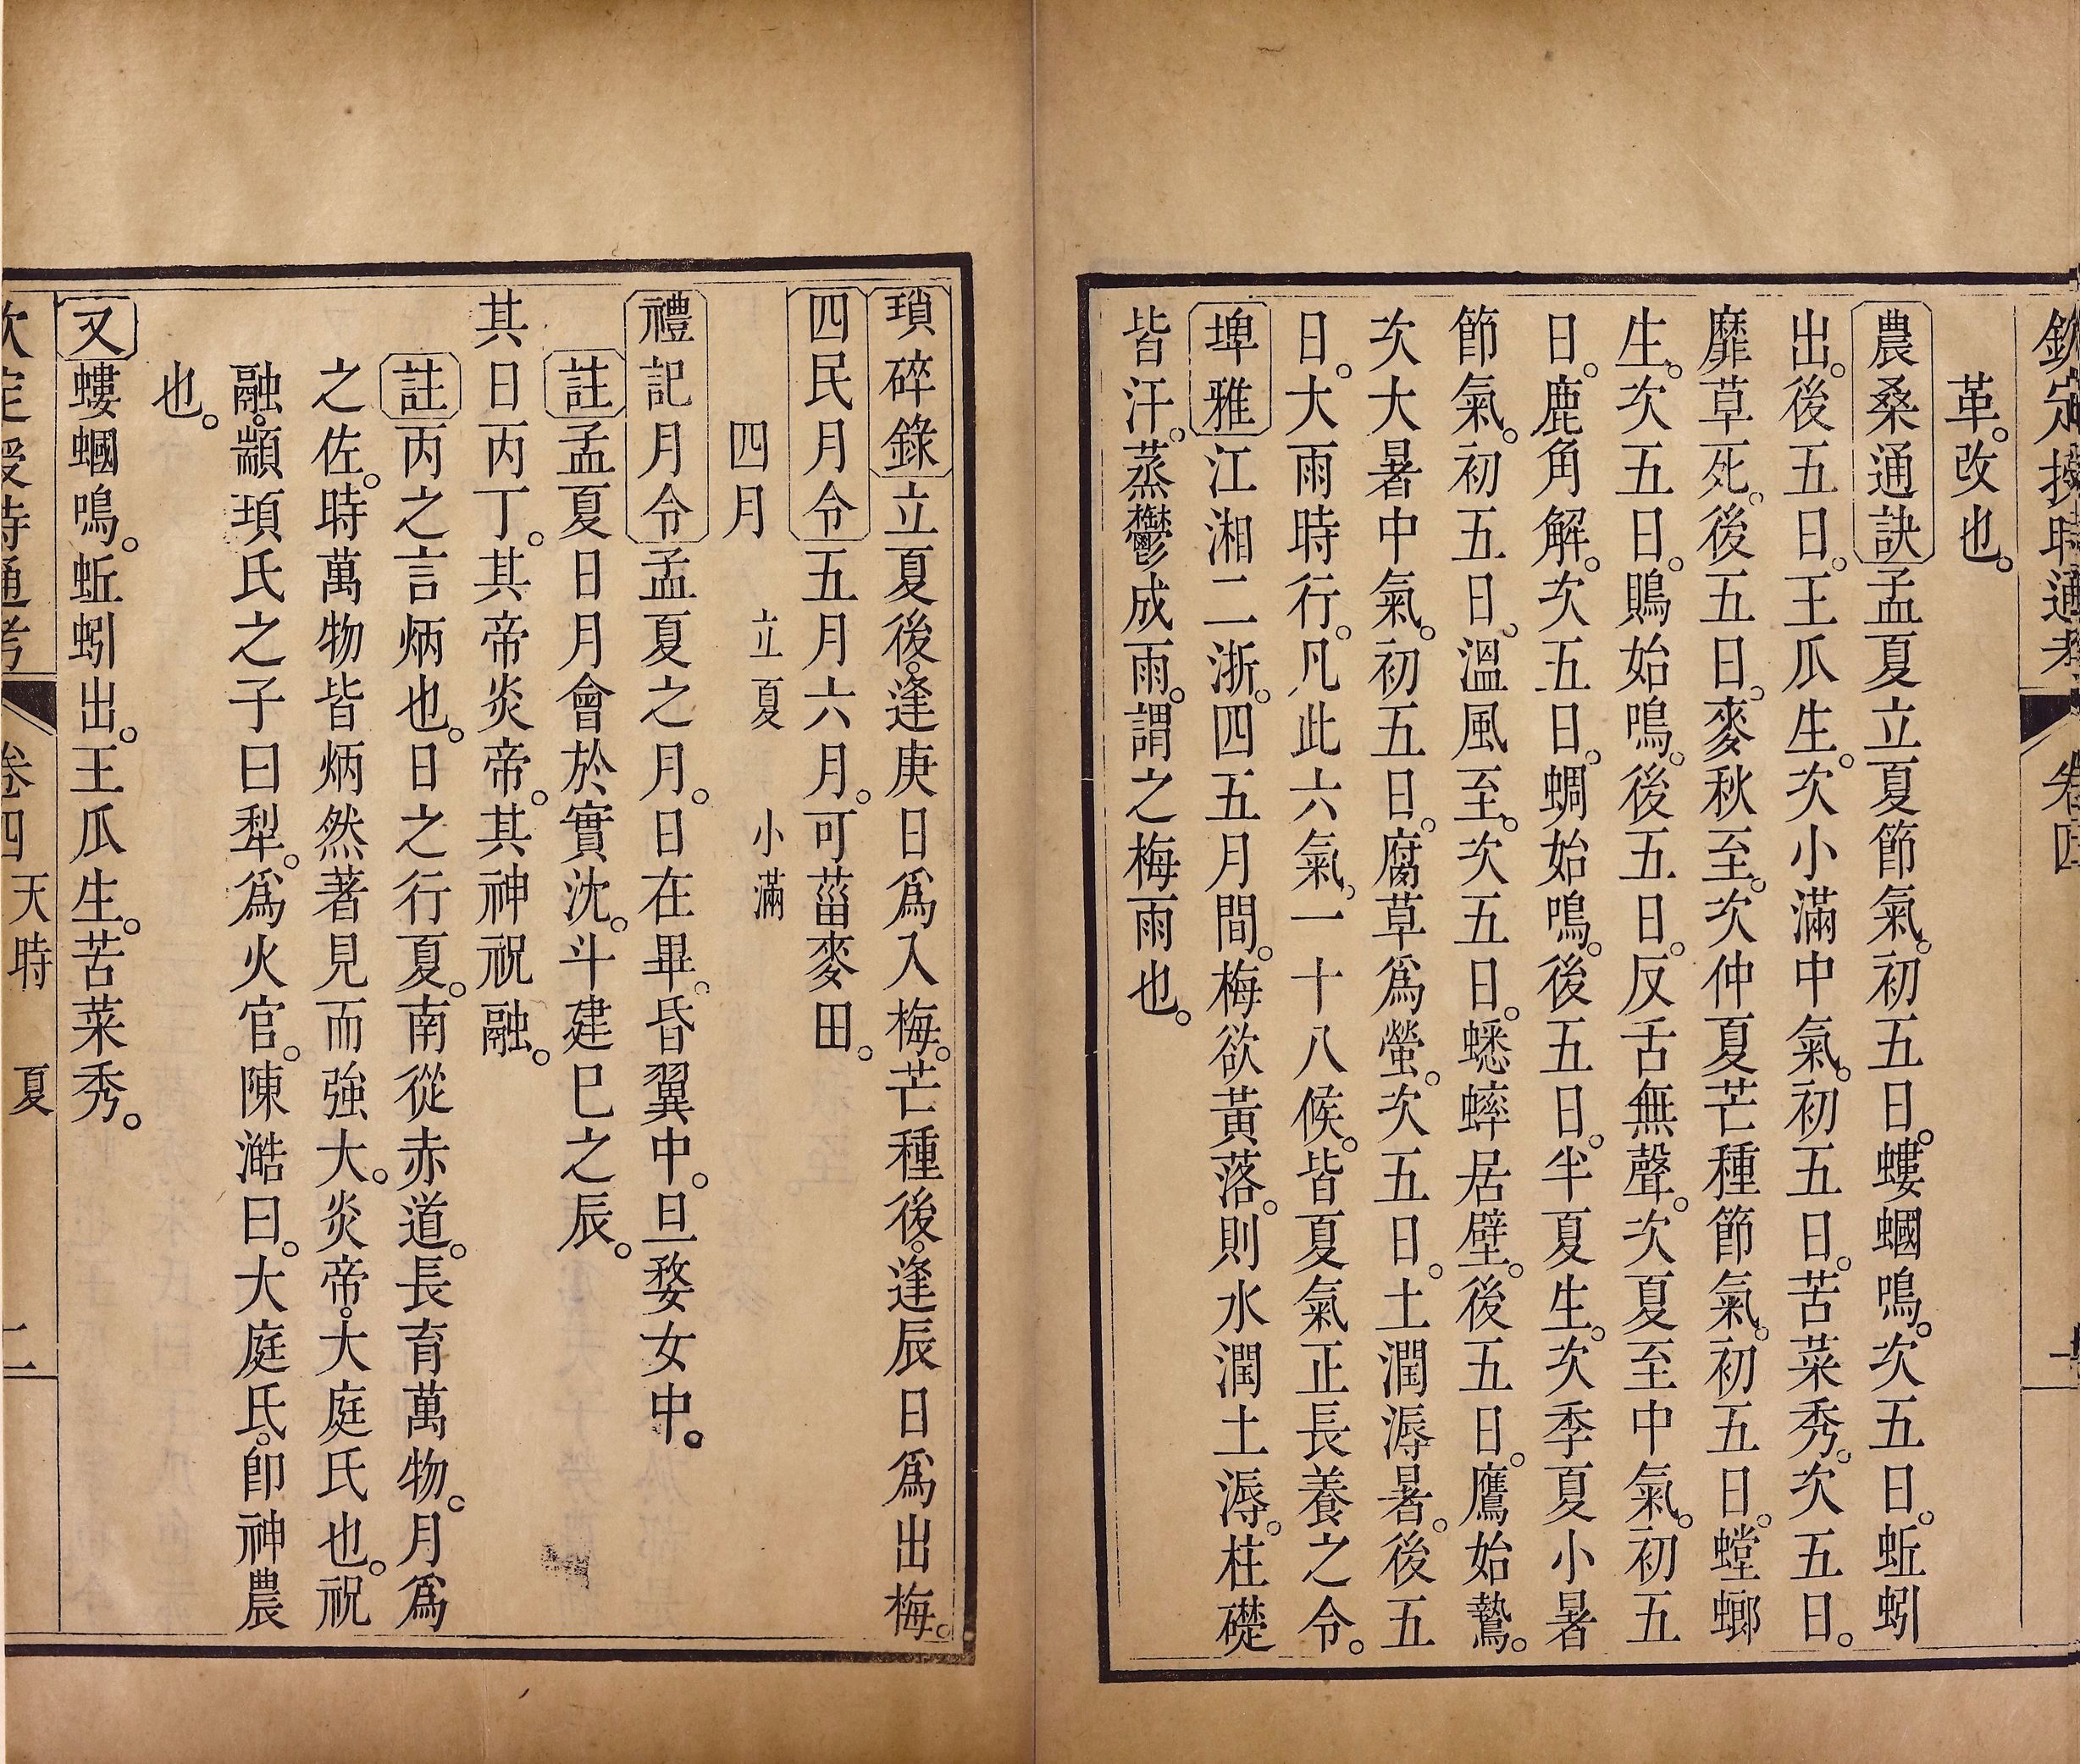 欽定授時通考 卷四 一
革。改也。
農桑通訣孟夏立夏節氣。初五日。螻蟈鳴。次五日。蚯蚓
出。後五日。王瓜生。次小滿中氣。初五日。苦菜秀。次五日。
靡草死。後五日。麥秋至。次仲夏芒種節氣。初五日。螳螂
生。次五日。鵙始鳴。後五日。反舌無聲。次夏至中氣。初五
日。鹿角解。次五日。蜩始鳴。後五日。半夏生。次季夏小暑
節氣。初五日。溫風至。次五日。蟋蟀居壁。後五日。鷹始鷙。
次大暑中氣。初五日。腐草爲螢。次五日。土潤溽暑。後五
日。大雨時行。凡此六氣。一十八候。皆夏氣正長養之令。
埤雅江湘二浙。四五月間。梅欲黃落。則水潤土溽。柱礎
皆汗。蒸鬱成雨。謂之梅雨也。
瑣碎錄立夏後。逢庚日爲入梅。芒種後。逢辰日爲出梅。
四民月令五月六月。可菑麥田。
四月 立夏 小滿
禮記月令孟夏之月。日在畢。昏翼中。旦婺女中。
註孟夏日月會於實沈。斗建巳之辰。
其日丙丁。其帝炎帝。其神祝融。
註丙之言炳也。日之行夏。南從赤道。長育萬物。月爲
之佐。時萬物皆炳然著見而強大。炎帝。大庭氏也。祝
融。顓頊氏之子曰犁。爲火官。陳澔曰。大庭氏。卽神農
也。
又螻蟈鳴。蚯蚓出。王瓜生。苦菜秀。
欽定授時通考 卷四 天時 夏 二